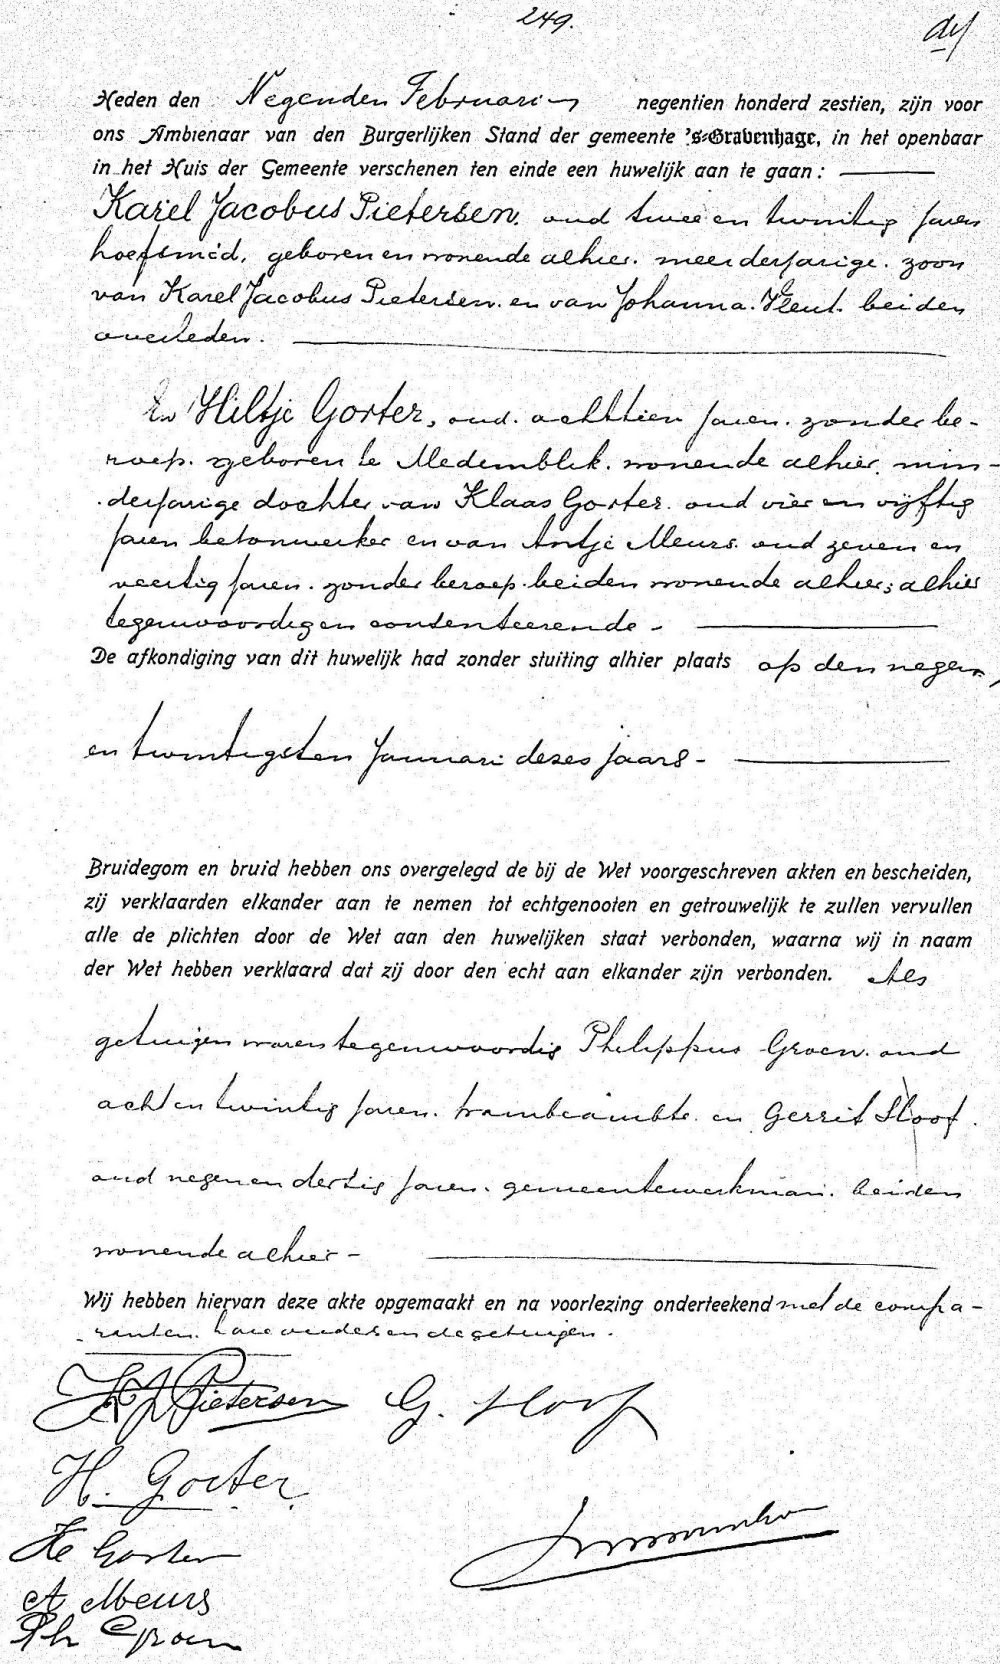 249.
Heden den Negenden Februari negentien honderd zestien, zijn voor
ons Ambtenaar van den Burgerlijken Stand der gemeente 's-Gravenhage, in het openbaar
in het Huis der Gemeente verschenen ten einde een huwelijk aan te gaan:
Karel Jacobus Pietersen, oud twee en twintig jaren
hoefsmid, geboren en wonende alhier, meerderjarige zoon
van Karel Jacobus Pietersen en van Johanna beiden
overleden.
En Hiltje Gorter, oud achttien jaren, zonder be-
roep, geboren te Medemblik, wonende alhier, min-
derjarige dochter van Klaas Gorter, oud vier en vijftig
jaren betonwerker en van Antje Meurs, oud zeven en
veertig jaren, zonder beroep, beiden wonende alhier; alhier
tegenwoordig en consenteerende -
De afkondiging van dit huwelijk had zonder stuiting alhier plaats op den negen
en twintigsten Januari dezes jaars -
Bruidegom en bruid hebben ons overgelegd de bij de Wet voorgeschreven akten en bescheiden,
zij verklaarden elkander aan te nemen tot echtgenooten en getrouwelijk te zullen vervullen
alle de plichten door de Wet aan den huwelijken staat verbonden, waarna wij in naam
der Wet hebben verklaard dat zij door den echt aan elkander zijn verbonden. Als
getuigen waren tegenwoordig Philippus Groen, oud
acht en twintig jaren, trambeambte, en Gerrit Sloof,
oud negen en dertig jaren, gemeentewerkman, beiden
wonende alhier -
Wij hebben hiervan deze akte opgemaakt en na voorlezing onderteekend met de compa-
ranten, hare ouders en de getuigen.
K J Pietersen G. Sloof
H. Gorter
K Gorter
A Meurs
Ph Groen